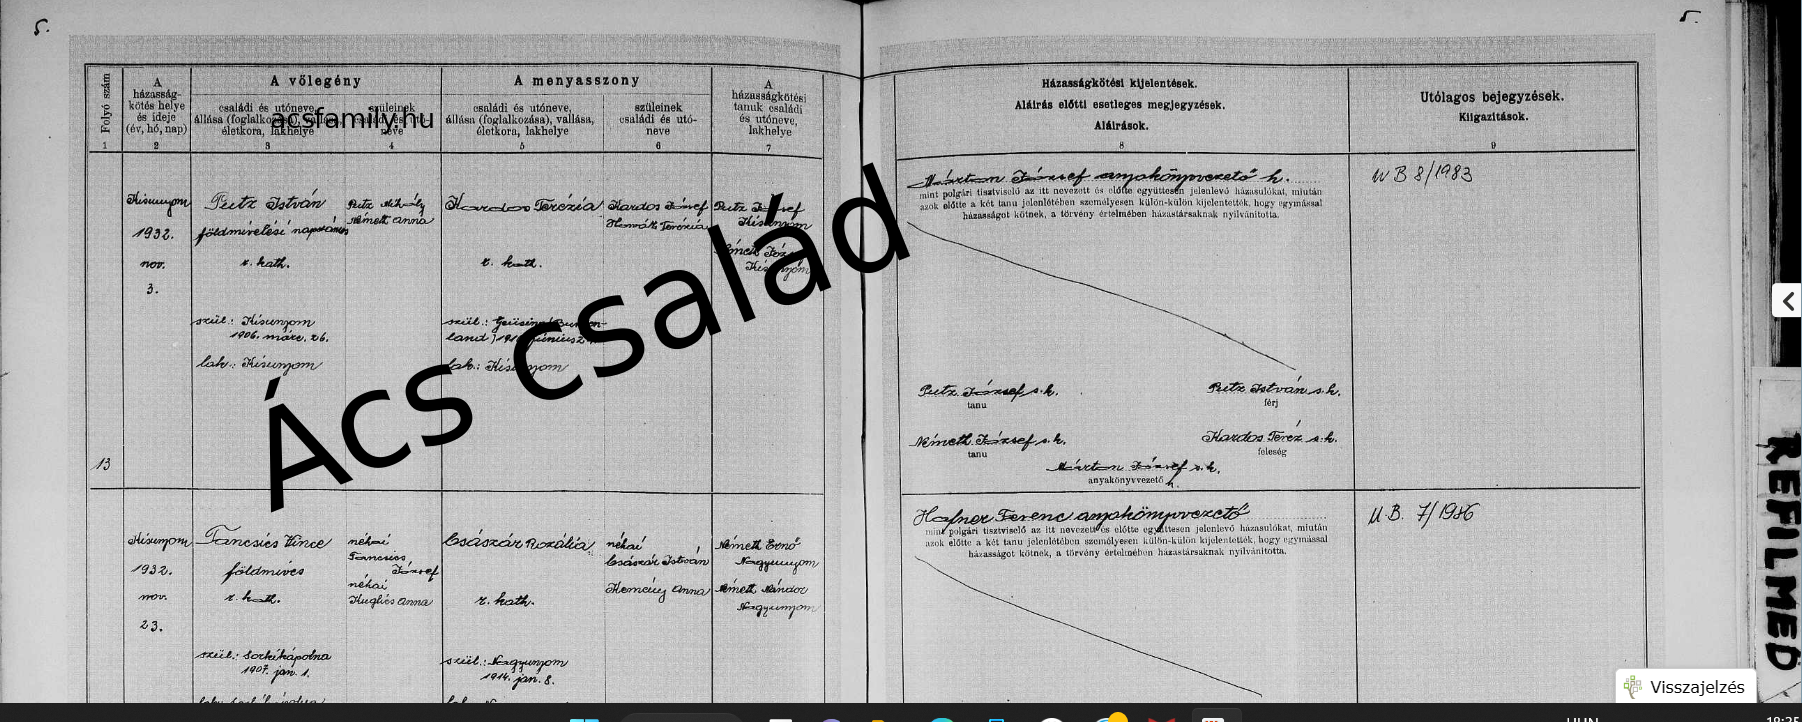 5.
5.
Folyó szám
A házasság-
kötés helye
és ideje
(év, hó, nap)
A vőlegény
családi és utóneve,
állása (foglalkozása), vallása,
életkora, lakhelye
szüleinek
családi és utó-
neve
A menyasszony
családi és utóneve,
állása (foglalkozása), vallása,
életkora, lakhelye
szüleinek
családi és utó-
neve
A
házasságkötési
tanuk családi
és utóneve,
lakhelye
Házasságkötési kijelentések.
Aláírás előtti esetleges megjegyzések.
Aláírások.
Utólagos bejegyzések.
Kiigazítások.
1 2 3 4 5 6 7 8 9
acsfamily.hu
Ács család
13
Kisunyom
1932.
nov.
3.
Putz István
földmivelési napszámos
r. kath.
szül.: Kisunyom
1906. márc. 26.
lak.: Kisunyom
Putz Mihály
Németh Anna
Kardos Terézia
r. kath.
szül.: Güssing
land)
lak.: Kisunyom
Kardos József
Horváth Terézia
Putz József
Kisunyom
Németh József
Kisunyom
Márton József anyakönyvvezető h.
mint polgári tisztviselő az itt nevezett és előtte együttesen jelenlevő házasulókat, miután
azok előtte a két tanu jelenlétében személyesen külön-külön kijelentették, hogy egymással
házasságot kötnek, a törvény értelmében házastársaknak nyilvánította.
U B 8/1983
Putz József s.k.
tanu
Putz István s.k.
férj
Németh József s.k.
tanu
Kardos Teréz s.k.
feleség
Márton József s.k.
anyakönyvvezető h.
Kisunyom
1932.
nov.
23.
Tancsics Vince
földmíves
r. kath.
szül.: Sorkikápolna
1907. jan. 1.
néhai
Tancsics
József
néhai
Kuglics Anna
Császár Rozália
r. kath.
szül.: Nagyunyom
1914. jan. 8.
néhai
Császár István
Anna
Németh Ernő
Nagyunyom
Németh Nándor
Nagyunyom
Hafner Ferenc anyakönyvvezető
mint polgári tisztviselő az itt nevezett és előtte együttesen jelenlevő házasulókat, miután
azok előtte a két tanu jelenlétében személyesen külön-külön kijelentették, hogy egymással
házasságot kötnek, a törvény értelmében házastársaknak nyilvánította.
U B. 7/1986
REFILMED
Visszajelzés
HUN